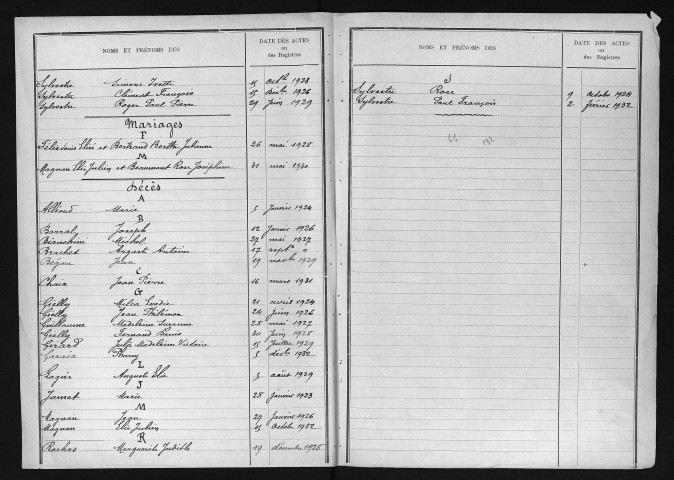 NOMS ET PRÉNOMS DES DATE DES ACTES
ou
des Registres
Sylvestre Simone Yvette 15 octb 1928
Sylvestre Clément François 15 décb 1926
Sylvestre Roger Paul Pierre 29 juin 1929
Mariages
F
Félix Louis Elie et Bertrand Berthe Julienne 26 mai 1928
M
Magnan Elie Julien et Beaumont Rose Joséphine 31 mai 1930
Décès
A
Alléoud Marie 5 Janvier 1924
B
Barral Joseph 12 Janvier 1926
Bianchini Michel 27 mai 1927
Brachet Auguste Antoine 17 septb "
Béjan Jean 19 novb 1929
C
Chaix Jean Pierre 16 mars 1931
G
Gielly 21 avril 1924
Gielly Jean Philémon 24 juin 1926
Guillaume Madeleine Suzanne 28 mai 1927
Gielly Fernand Denis 30 juin 1928
Girard Julie Madeleine Victoire 15 Juillet 1929
Garaix Fanny 5 décb 1932
L
Lagier Auguste Elie 5 août 1929
J
Jamet Marie 28 janvier 1923
M
Magnan Jean 29 Janvier 1926
Magnan Elie Julien 15 Octobre 1932
R
Rochas Marguerite Judith 19 décembre 1926
NOMS ET PRÉNOMS DES DATE DES ACTES
ou
des Registres
S
Sylvestre Rose 9 Octobre 1924
Sylvestre Paul François 2 février 1932
66 192